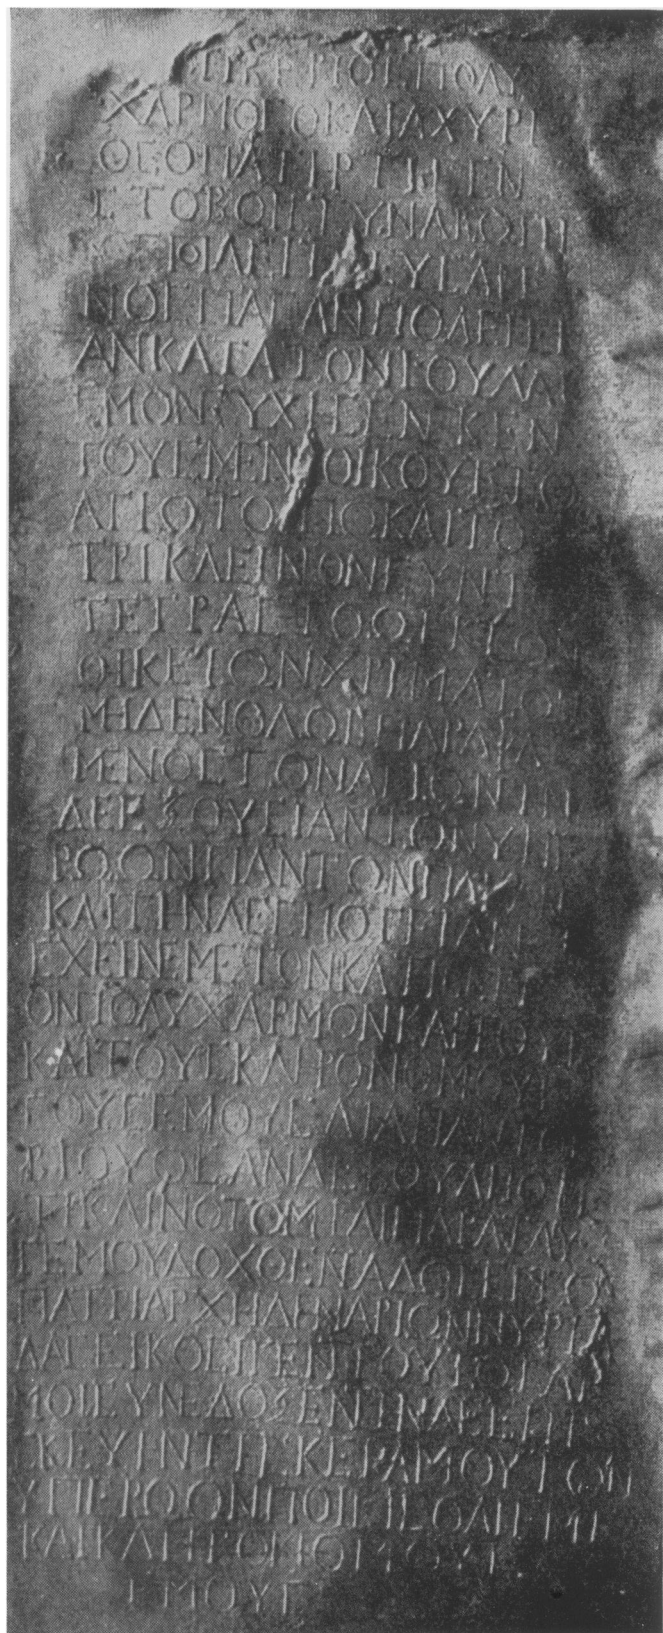 ΤΙΒΕΡΙΟΣ ΠΟΛΥ
ΧΑΡΜΟΣ Ο ΚΑΙ ΑΧΥΡΙ
ΟΣ Ο ΠΑΤΗΡ ΤΗΣ ΕΝ
ΣΤΟΒΟΙΣ ΣΥΝΑΓΩΓΗΣ
ΟΣ ΠΟΛΕΙΤΕΥΣΑΜΕ
ΝΟΣ ΠΑΣΑΝ ΠΟΛΕΙΤΕΙ
ΑΝ ΚΑΤΑ ΤΟΝ ΙΟΥΔΑΙ
ΣΜΟΝ ΕΥΧΗΣ ΕΝΕΚΕΝ
ΤΟΥΣ ΜΕΝ ΟΙΚΟΥΣ ΤΩ
ΑΓΙΩ ΤΟΠΩ ΚΑΙ ΤΟ
ΤΡΙΚΛΕΙΝΟΝ ΣΥΝ ΤΩ
ΤΕΤΡΑΣΤΟΩ ΕΚ ΤΩΝ
ΟΙΚΕΙΩΝ ΧΡΗΜΑΤΩΝ
ΜΗΔΕΝ ΟΛΩΣ ΠΑΡΑΨΑ
ΜΕΝΟΣ ΤΩΝ ΑΓΙΩΝ ΤΗΝ
ΔΕ ΕΞΟΥΣΙΑΝ ΤΩΝ ΥΠΕ
ΡΩΩΝ ΠΑΝΤΩΝ ΠΑΣΑΝ
ΚΑΙ ΤΗΝ ΔΕΣΠΟΤΕΙΑΝ
ΕΧΕΙΝ ΕΜΕ ΤΟΝ ΚΛ ΤΙΒΕΡΙ
ΟΝ ΠΟΛΥΧΑΡΜΟΝ ΚΑΙ ΤΟΥΣ
ΚΑΙ ΤΟΥΣ ΚΛΗΡΟΝΟΜΟΥΣ
ΤΟΥΣ ΕΜΟΥΣ ΔΙΑ ΠΑΝΤΟΣ
ΒΙΟΥ ΟΣ ΑΝ ΔΕ ΒΟΥΛΗΘΗ
ΤΙ ΚΑΙΝΟΤΟΜΗΣΑΙ ΠΑΡΑ ΤΑ Υ
Π ΕΜΟΥ ΔΟΧΘΕΝΤΑ ΔΩΣΕΙ ΤΩ
ΠΑΤΡΙΑΡΧΗ ΔΗΝΑΡΙΩΝ ΜΥΡΙΑ
ΔΑΣ ΕΙΚΟΣΙ ΠΕΝΤΕ ΟΥΤΩ ΓΑΡ
ΜΟΙ ΣΥΝΕΔΟΞΕΝ ΤΗΝ ΔΕ ΕΠΙ
ΣΚΕΥΗΝ ΤΗΣ ΚΕΡΑΜΟΥ ΤΩΝ
ΥΠΕΡΩΩΝ ΠΟΙΕΙΣΘΑΙ ΕΜΕ
ΚΑΙ ΚΛΗΡΟΝΟΜΟΥΣ
ΕΜΟΥΣ